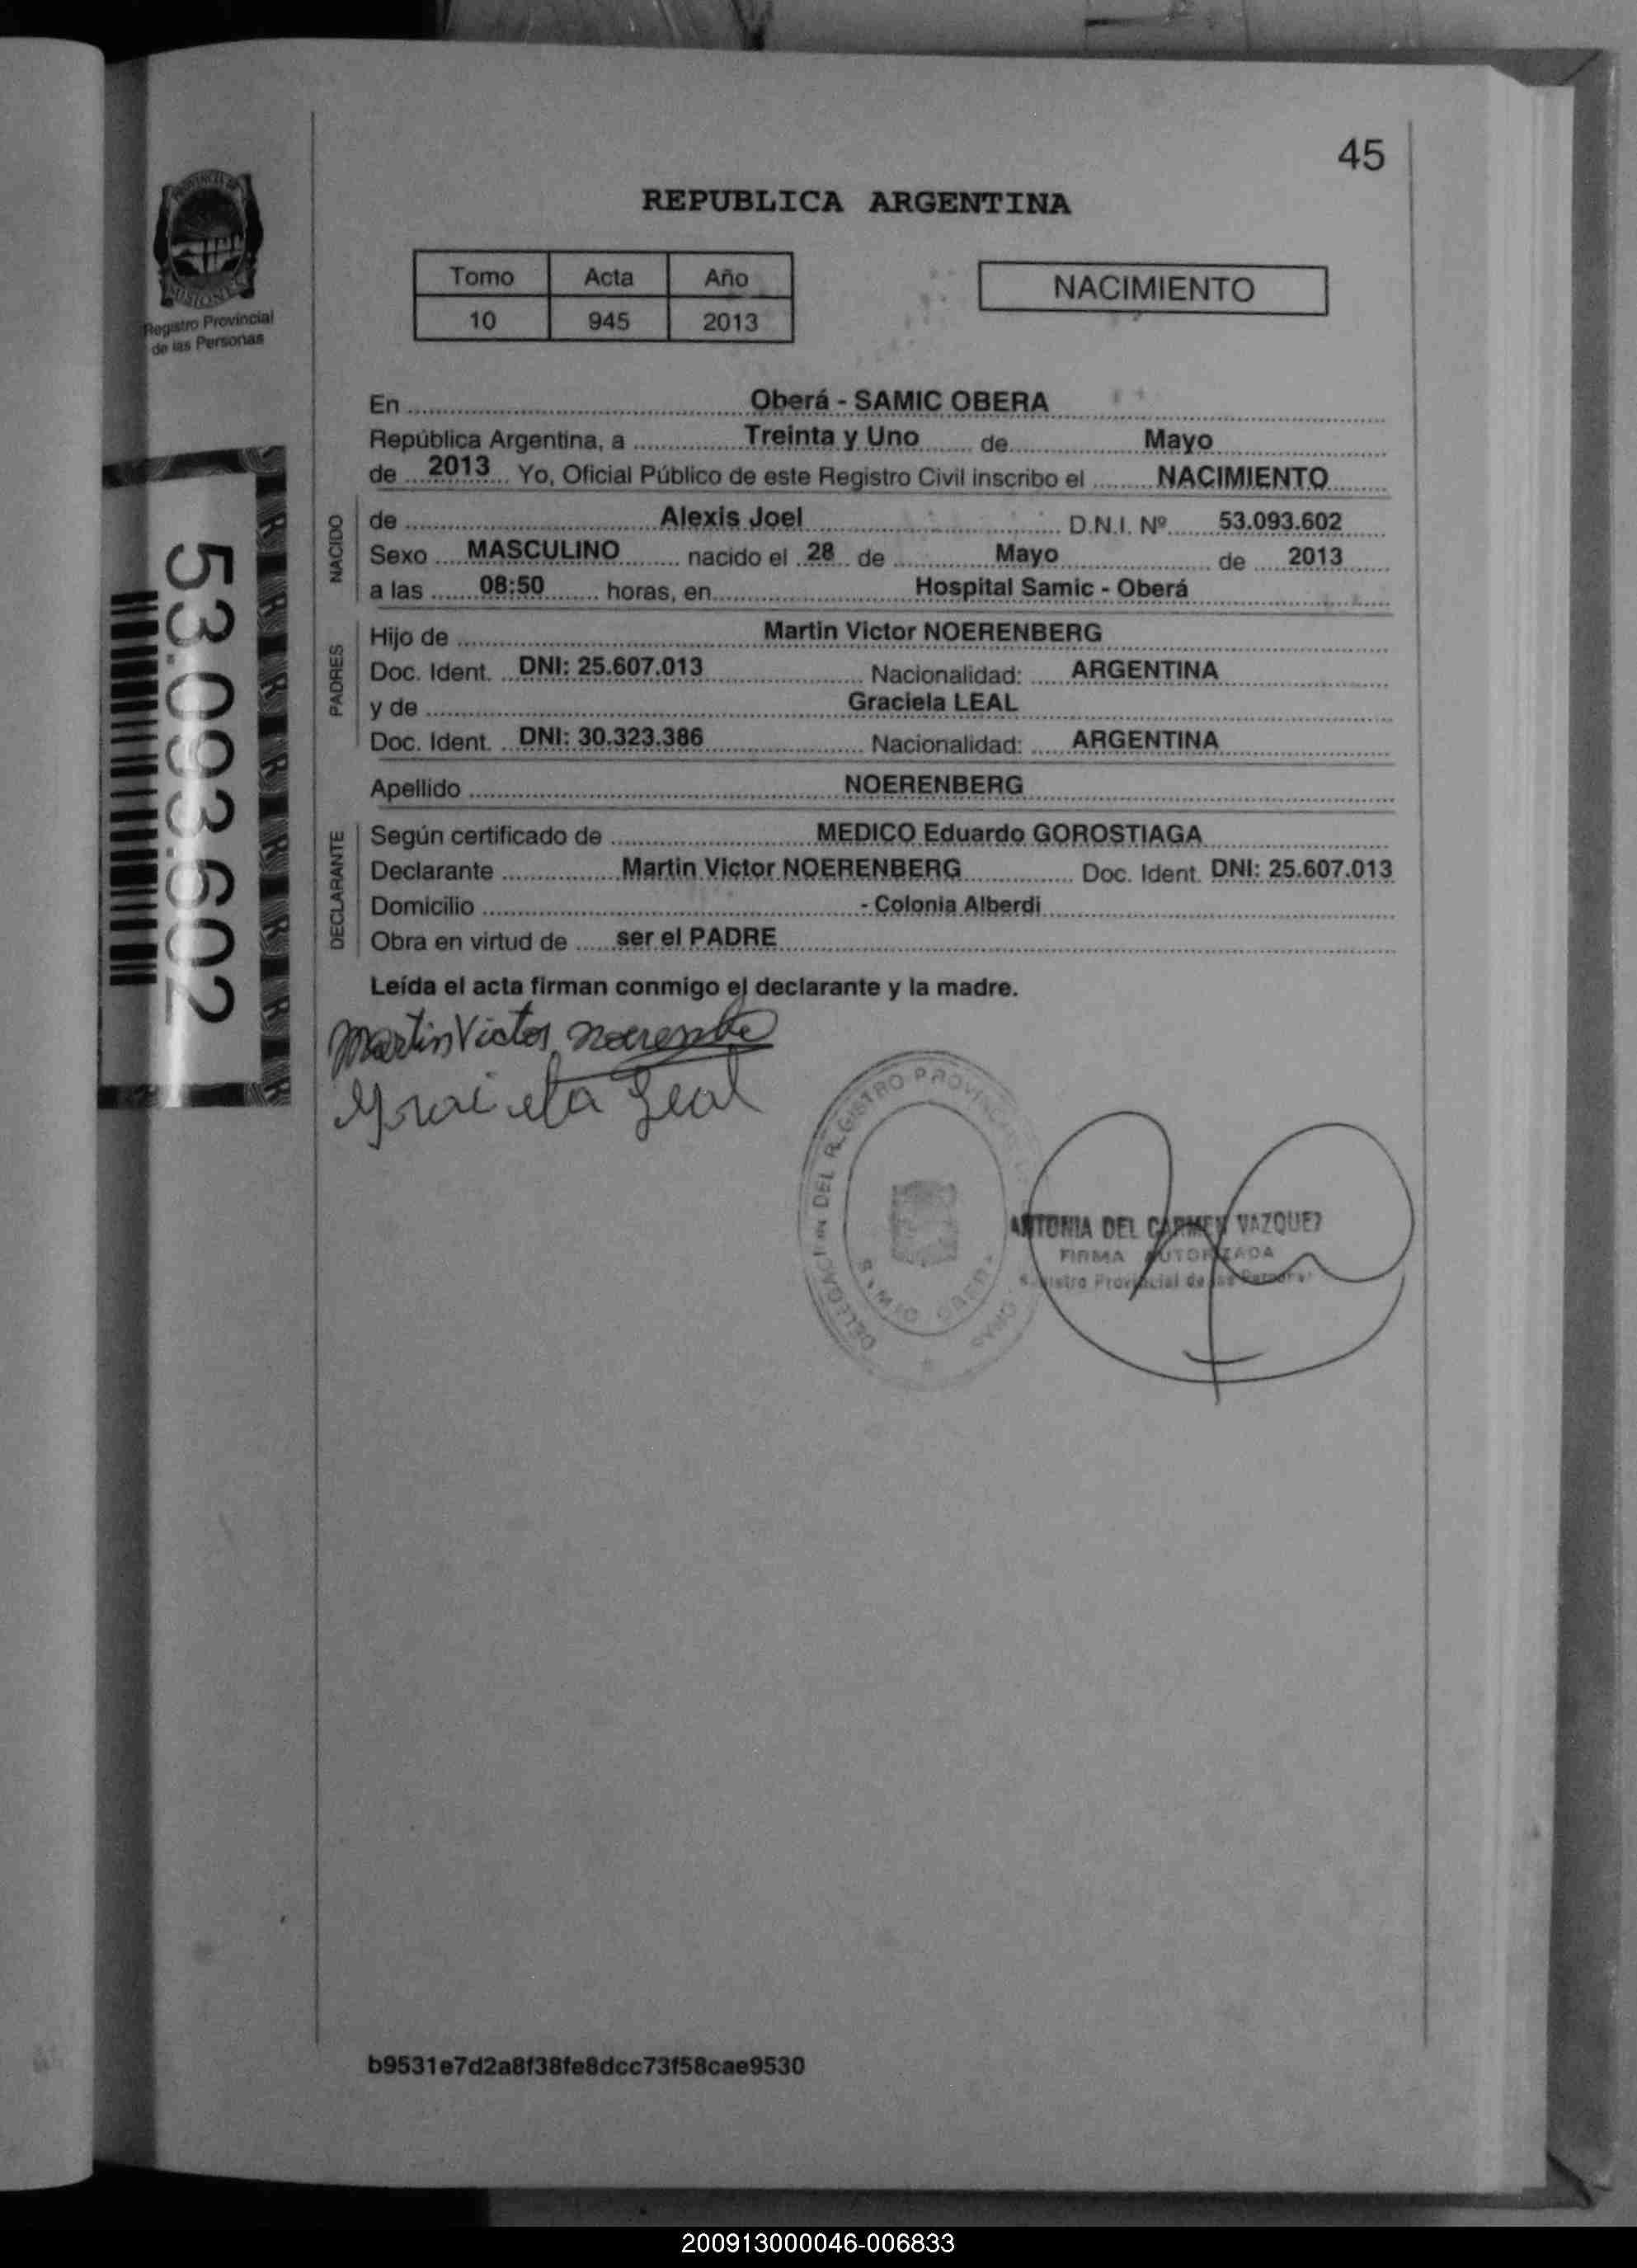 45
REPUBLICA ARGENTINA
PROVINCIA DE
MISIONES
Registro Provincial
de las Personas
Tomo Acta Año
10 945 2013
NACIMIENTO
En Oberá - SAMIC OBERA
República Argentina, a Treinta y Uno de Mayo
de 2013 Yo, Oficial Público de este Registro Civil inscribo el NACIMIENTO
NACIDO
de Alexis Joel D.N.I. Nº 53.093.602
Sexo MASCULINO nacido el 28 de Mayo de 2013
a las 08:50 horas, en Hospital Samic - Oberá
PADRES
Hijo de Martin Victor NOERENBERG
Doc. Ident. DNI: 25.607.013 Nacionalidad: ARGENTINA
y de Graciela LEAL
Doc. Ident. DNI: 30.323.386 Nacionalidad: ARGENTINA
Apellido NOERENBERG
DECLARANTE
Según certificado de MEDICO Eduardo GOROSTIAGA
Declarante Martin Victor NOERENBERG Doc. Ident. DNI: 25.607.013
Domicilio - Colonia Alberdi
Obra en virtud de ser el PADRE
Leída el acta firman conmigo el declarante y la madre.
53.093.602
Martin Victor
Graciela Leal
DEL REGISTRO
ANTONIA DEL CARMEN VAZQUEZ
FIRMA AUTORIZADA
Registro Provincial de las Personas
b9531e7d2a8f38fe8dcc73f58cae9530
200913000046-006833